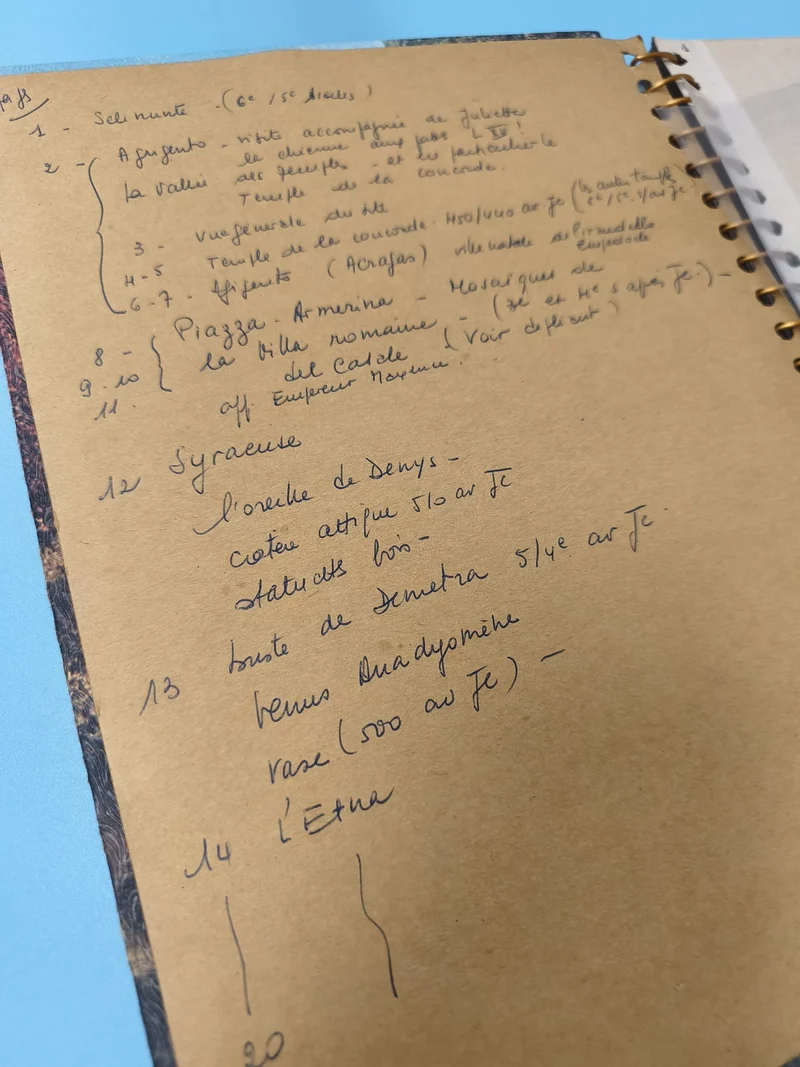 1 - Selinunte - (6e / 5e siècles)
2 - Agrigento - visite accompagnée de Juliette
la chienne aux pattes L XV !
la vallée des Temples - et en particulier le
Temple de la concorde.
3 - Vue générale du site
4-5 Temple de la concorde. 450/440 av JC (les autres temples
6e/5e s/av JC)
6-7 - Agrigento (Acragas) ville natale de Pirandello
Empedocle
8 - Piazza-Armerina - Mosaïques de
9.10 la Villa romaine - (3e et 4e s après JC.) -
11. del Casale (Voir dépliant)
aff. Empereur Maxence.
12 Syracuse
l'oreille de Denys -
cratère attique 510 av JC
statuettes bois -
13 buste de Demetra 5/4e. av JC.
Venus Anadyomène
vase (500 av JC) -
14 L'Etna
20